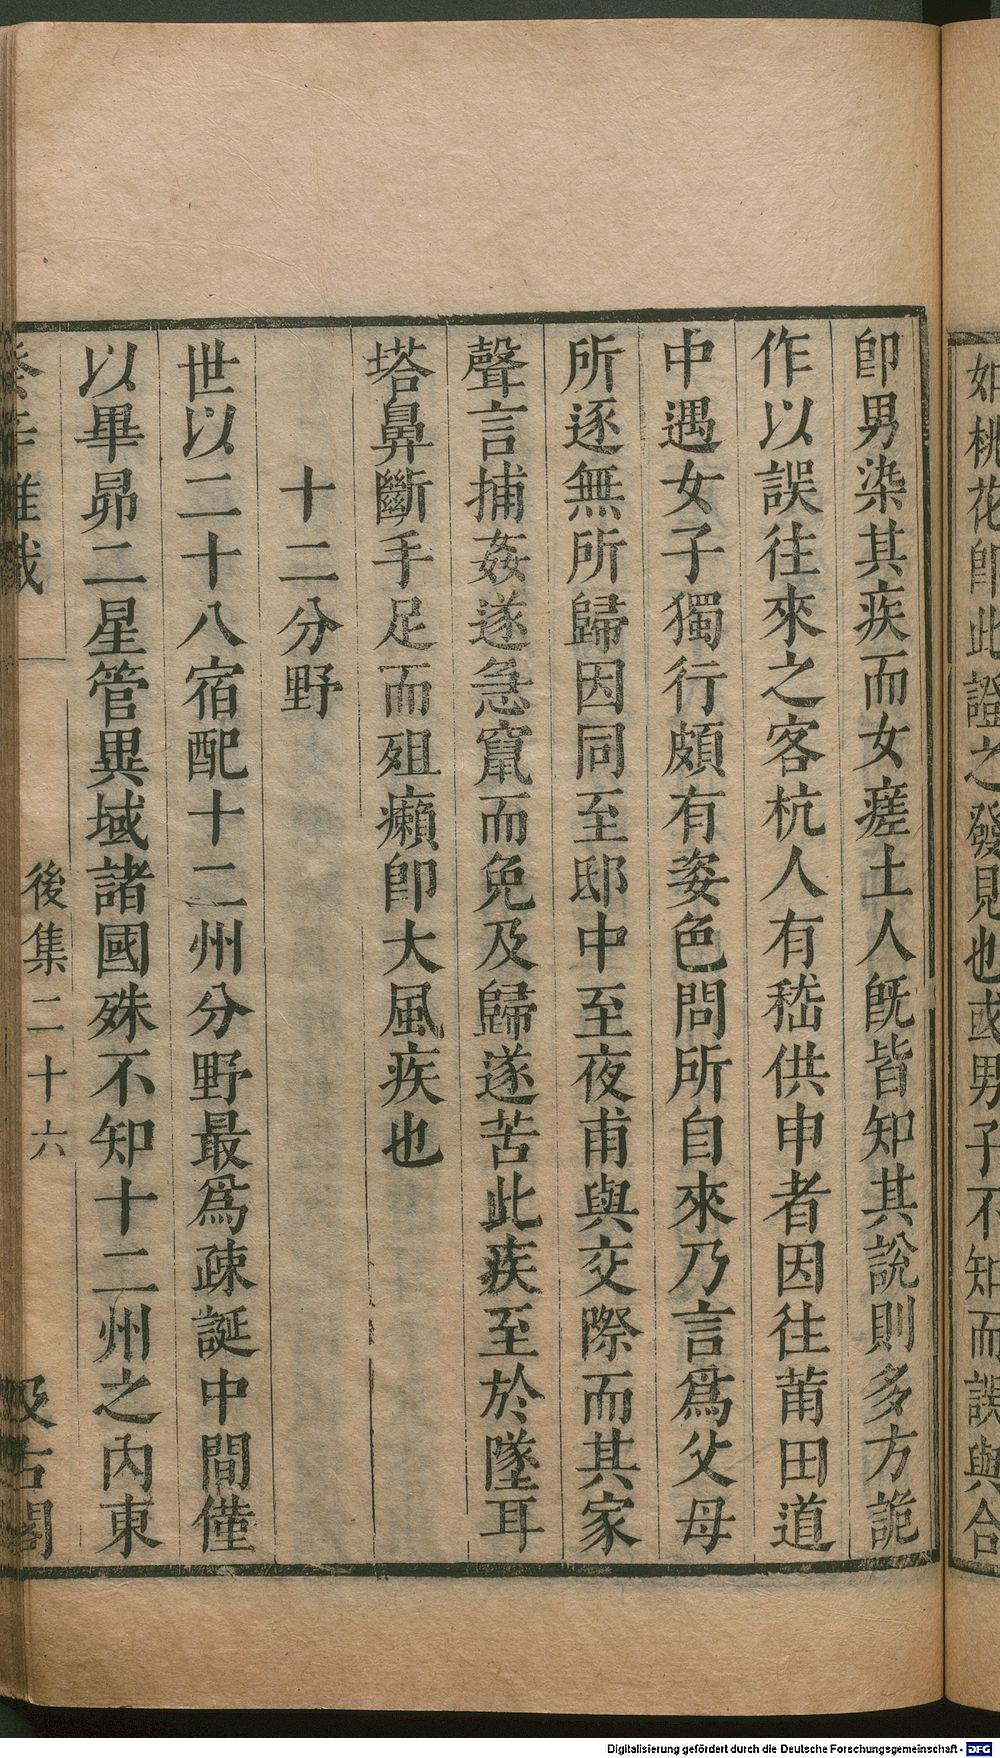 如桃花卽此證之發見也或男子不知而誤與合
卽男染其疾而女瘥土人旣皆知其說則多方詭
作以誤往來之客杭人有嵇供申者因往莆田道
中遇女子獨行頗有姿色問所自來乃言爲父母
所逐無所歸因同至邸中至夜甫與交際而其家
聲言捕姦遂急竄而免及歸遂苦此疾至於墜耳
塔鼻斷手足而殂癩卽大風疾也
十二分野
世以二十八宿配十二州分野最爲疎誕中間僅
以畢昴二星管異域諸國殊不知十二州之內東
癸辛雜識
後集二十六
汲古閣
Digitalisierung gefördert durch die Deutsche Forschungsgemeinschaft - DFG